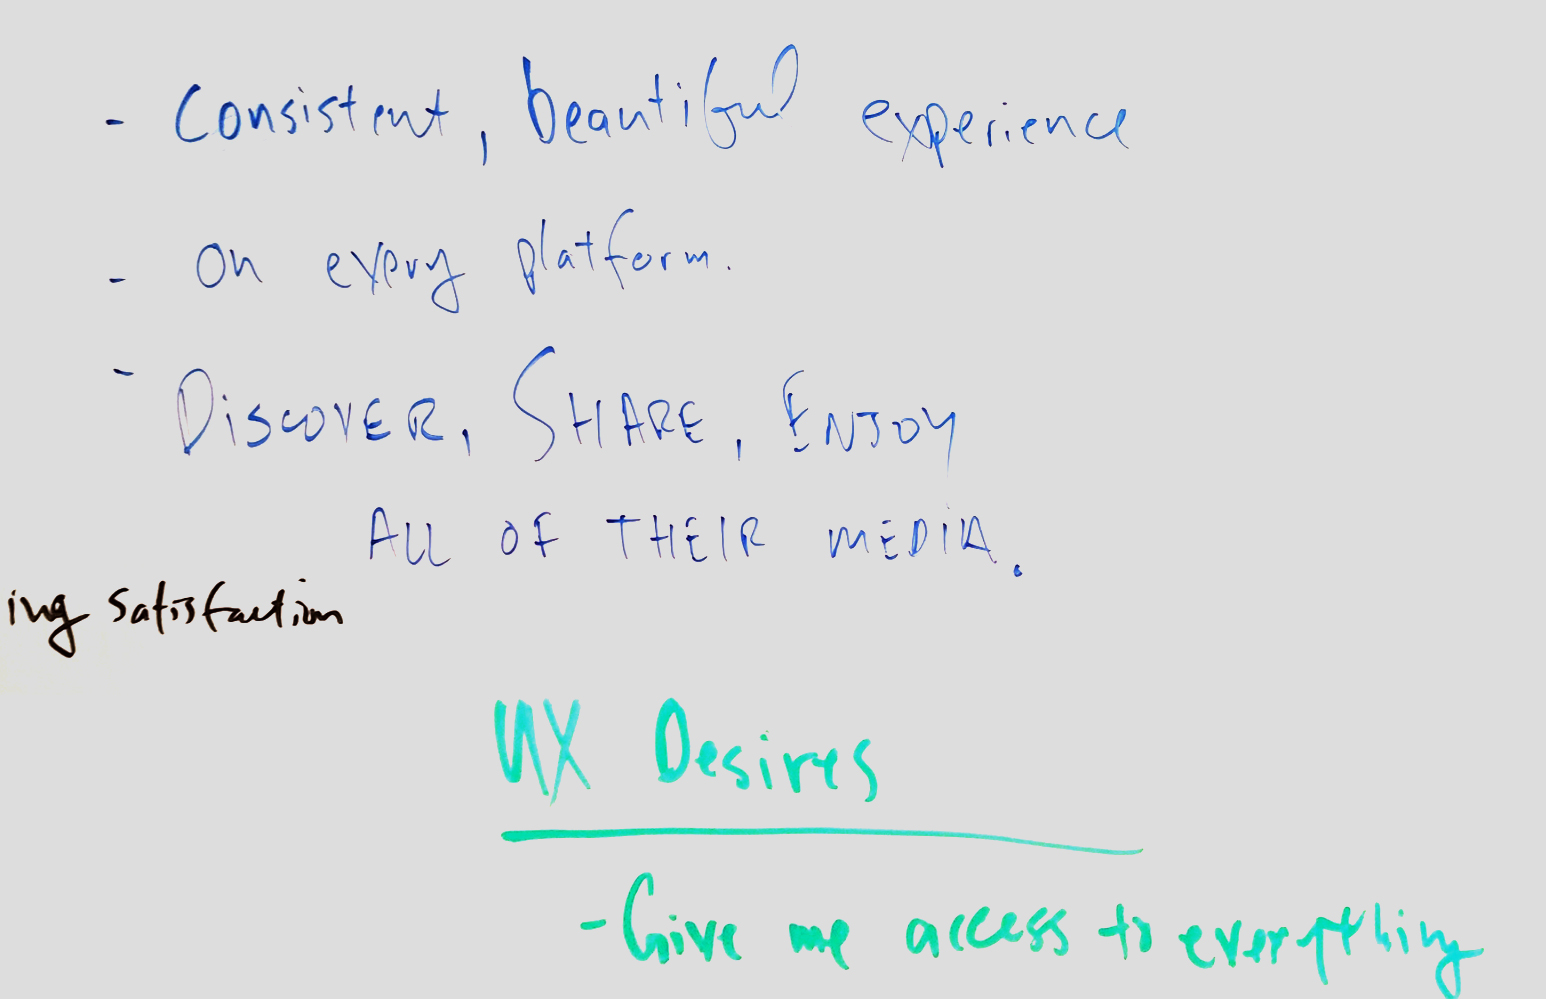 - Consistent, beautiful experience
- On every platform.
- DISCOVER, SHARE, ENJOY
ALL OF THEIR MEDIA.
ing satisfaction
UX Desires
- Give me access to everything